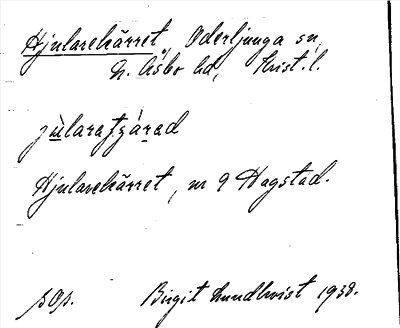 Hjularekärret, Oderljunga sn,
N. Åsbo hd, Krist. l.
Hjularekärret, nr 9 Hagstad.
sOp. Birgit Lundkvist 1938.